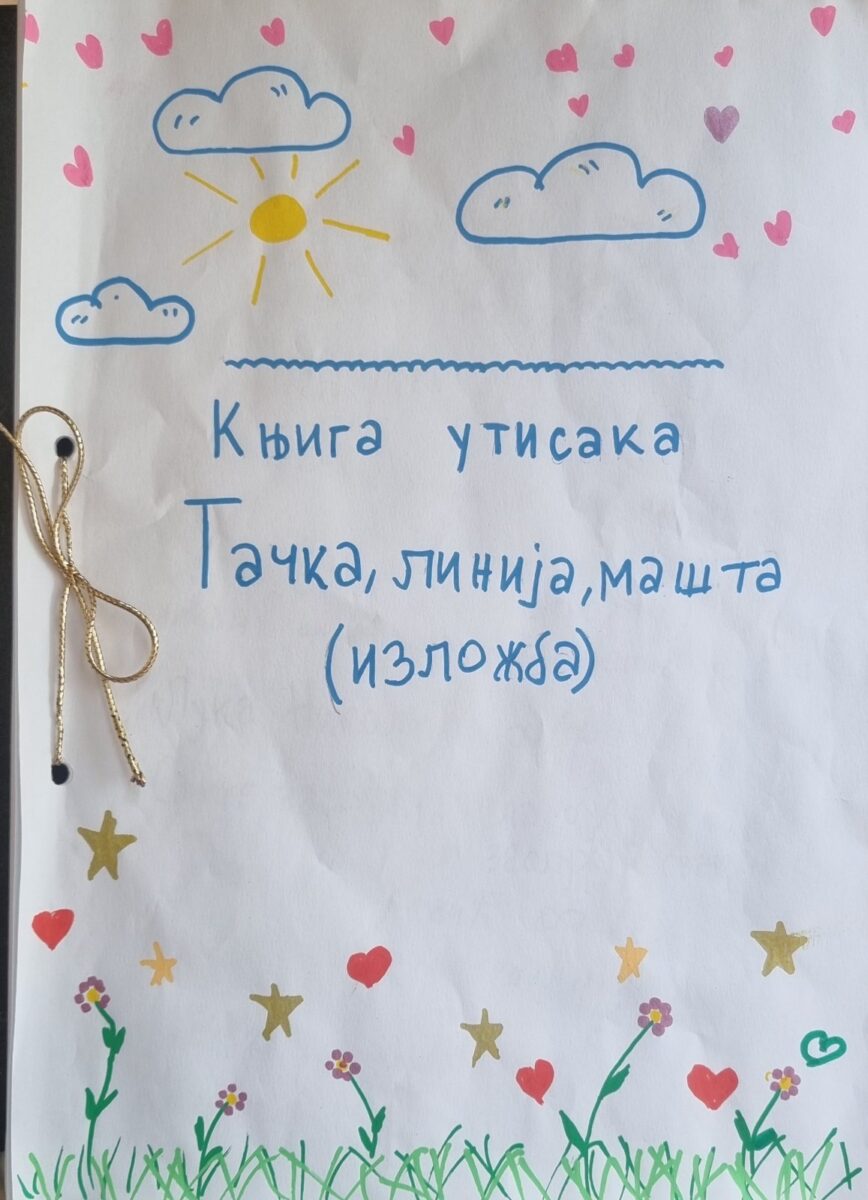 Књига утисака
Тачка, линија, машта
(изложба)